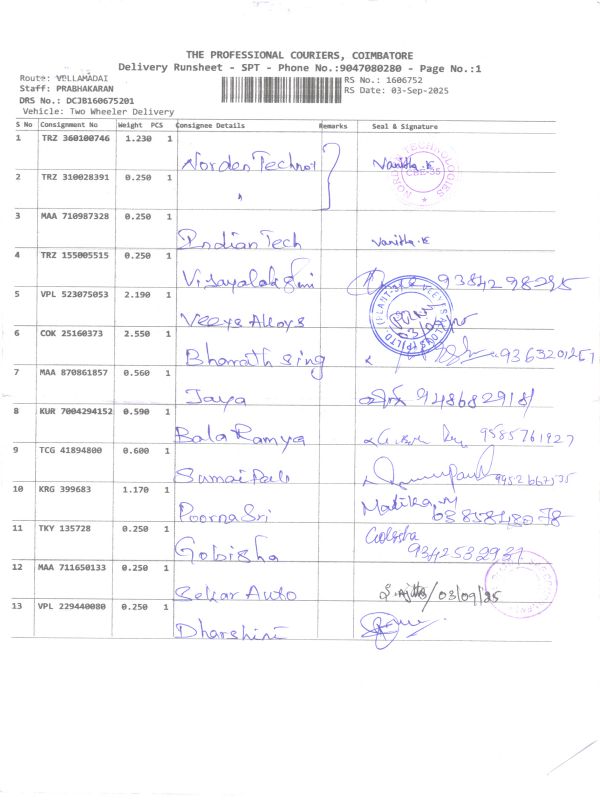 THE PROFESSIONAL COURIERS, COIMBATORE
Delivery Runsheet - SPT - Phone No.:9047080280 - Page No.:1
Route: VELLAMADAI
Staff: PRABHAKARAN
DRS No.: DCJB160675201
Vehicle: Two Wheeler Delivery
RS No.: 1606752
RS Date: 03-Sep-2025
S No Consignment No Weight PCS Consignee Details Remarks Seal & Signature
1 TRZ 360100746 1.230 1 Norden Technol Vanitha.K
2 TRZ 310028391 0.250 1 "
CBE-35
3 MAA 710987328 0.250 1 Indian Tech Vanitha.K
4 TRZ 155005515 0.250 1 Vijayalakshmi 9384298295
5 VPL 523075053 2.190 1 Veeys Alloys
6 COK 25160373 2.550 1 Bharath Sing 9363201251
7 MAA 870861857 0.560 1 Jaya 9486829181
8 KUR 7004294152 0.590 1 Bala Ramya 9585761927
9 TCG 41894800 0.600 1 9952667535
10 KRG 399683 1.170 1 Poorna Sri
11 TKY 135728 0.250 1 Gobisha 9342532937
12 MAA 711650133 0.250 1 Sekar Auto 03/09/25
13 VPL 229440080 0.250 1 Dharshini